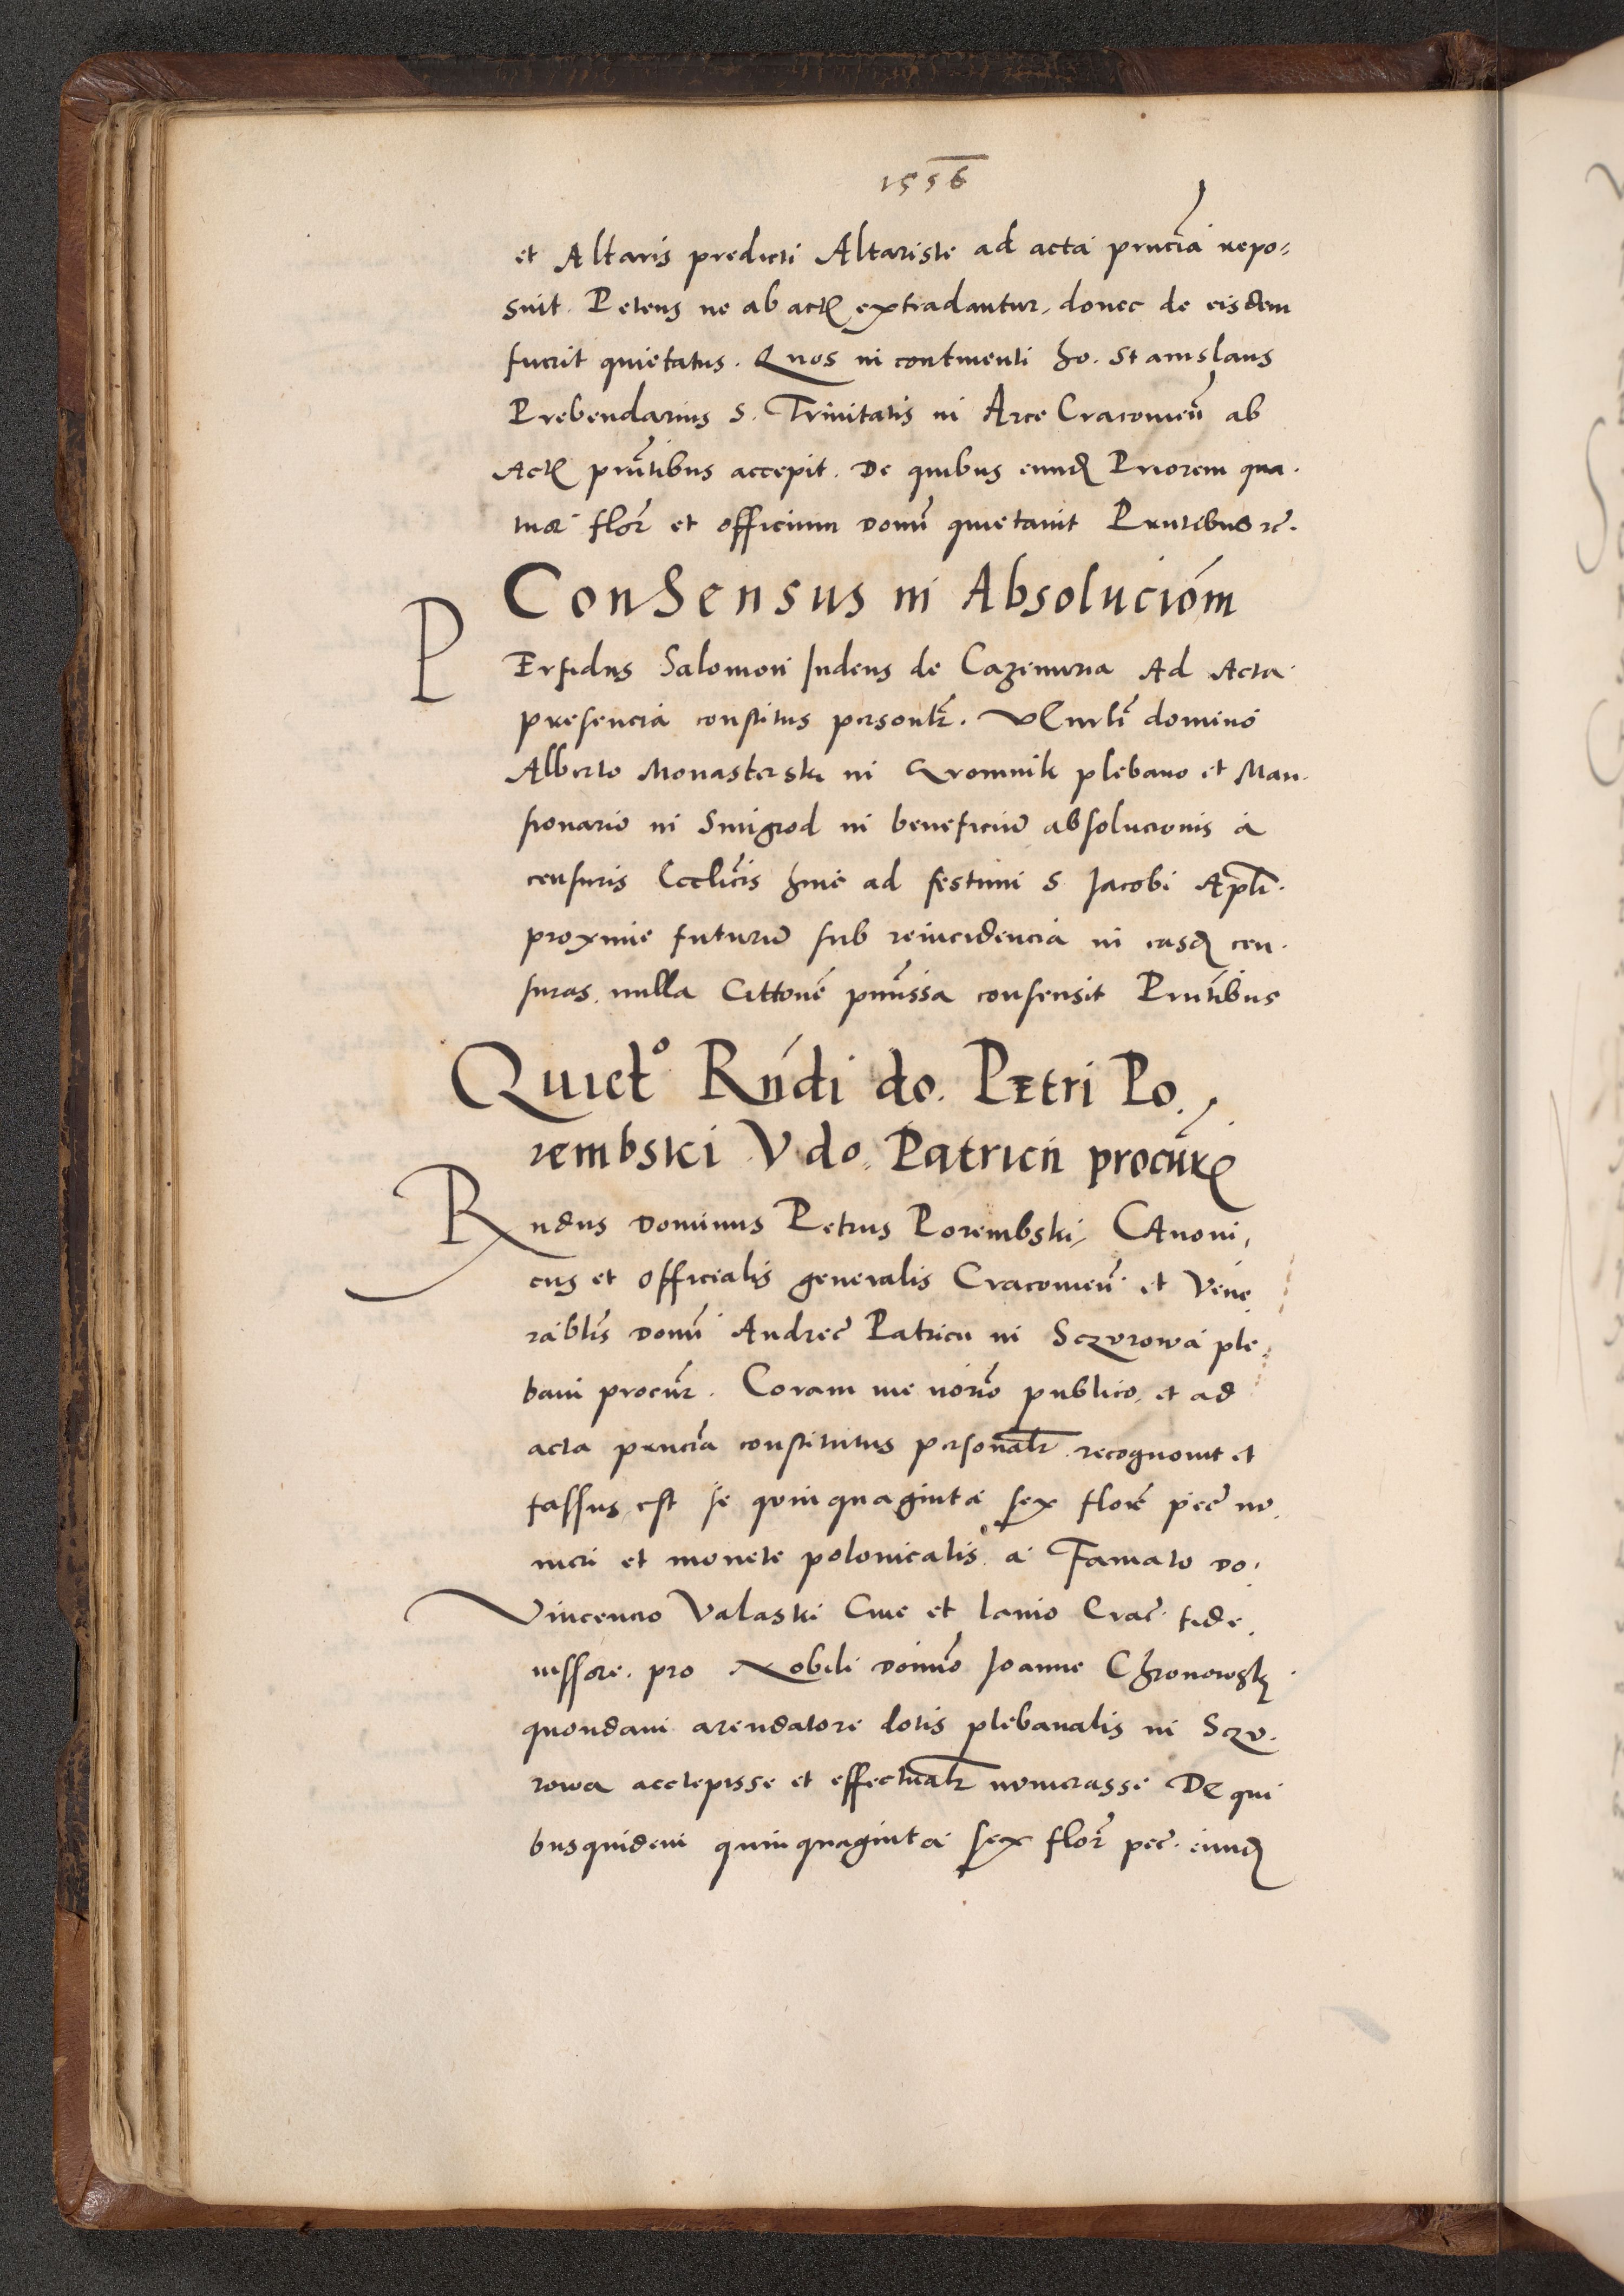 1556
et Altaris predicti Altariste ad acta prncia͂ repo⸗
suit. Petens ne ab actꝭ extradantur, donec de eisdem
fuerit quietatus. Quos in continenti ho. Stanislaus
Prebendarius S. Trinitatis in Arce Cracouien̄ ab
Actꝭ prn̄tibus accepit. De quibus eundꝭ Priorem qua.
tuor flor̄ et officium domn̄ quietauit Prntibus ꝛc̄.
Consensus in Absolucio͂m
PErfidus Salomon Iudeus de Cazimiria Ad Acta
presencia constitus personlr̄. Venrli͂ domino
Alberto Monasterski in Gromnik plebano et Man.
sionario in Smigrod in beneficiu͂ absolucionis a
censuris Ecclicis hinc ad festum S Jacobi Apli͂.
proxime futuru͂ sub reincidencia in easdꝭ cen.
suras. nulla Cittone͂ pmissa consensit Prntibus
Quiet° Rndi do. Petri Po.
rembski V do. Patricii procur̄
Rndus Dominus Petrus Porembski, Canoni,
cus et officialis generalis Cracouien̄ et Vene
rablis domn̄ Andree͂ Patricii in Sczurowa ple.
bani procur̄. Coram me norio͂ publico, et ad
acta prncia͂ constitutus personalr̄ recognouit et
fassus est se quinquaginta sex flore͂ pec̄ nu.
meri et monete polonicalis a Famato Do.
Vincencio Valaski Ciue et lanio Crac̄. fide.
iussore. pro Nobili domn̄o Joanne Chronowskꝭ
quondam arendatore dotis plebanalis in Sczu.
rowa accepisse et effectualr̄ numerasse De qui
busquidem quinquaginta sex flor̄ pec̄. eundꝭ